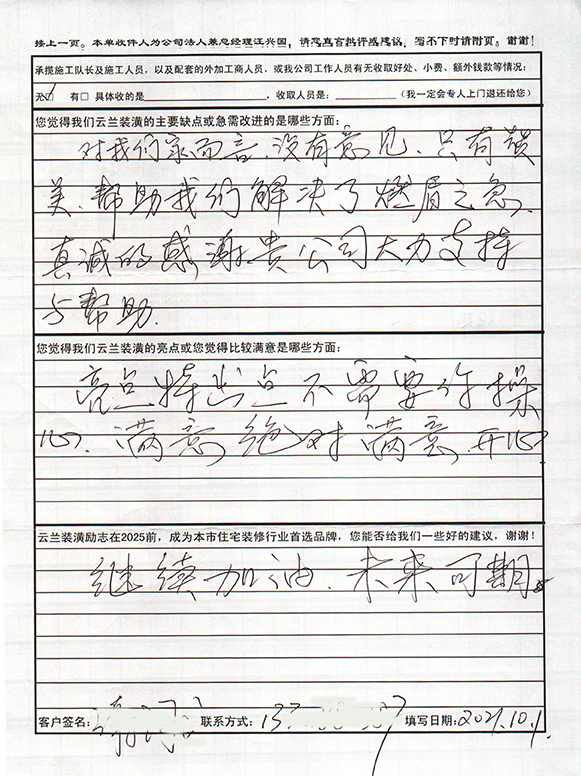 接上一页。本单收件人为公司法人兼总经理汪兴国,请您直言批评或建议,写不下时请附页。谢谢!
承揽施工队长及施工人员,以及配套的外加工商人员,或我公司工作人员有无收取好处、小费、额外钱款等情况:
无☑ 有□ 具体收的是 ,收取人员是: (我一定会专人上门退还给您)
您觉得我们云兰装潢的主要缺点或急需改进的是哪些方面:
对我们家而言,没有意见,只有赞
美,帮助我们解决了燃眉之急,
真诚的感谢贵公司大力支持
与帮助.
您觉得我们云兰装潢的亮点或您觉得比较满意是哪些方面:
亮点特出点不需要你操
心,满意绝对满意,开心
云兰装潢励志在2025前,成为本市住宅装修行业首选品牌,您能否给我们一些好的建议,谢谢!
继续加油.未来可期
客户签名: 联系方式:137 填写日期:2021.10.1.